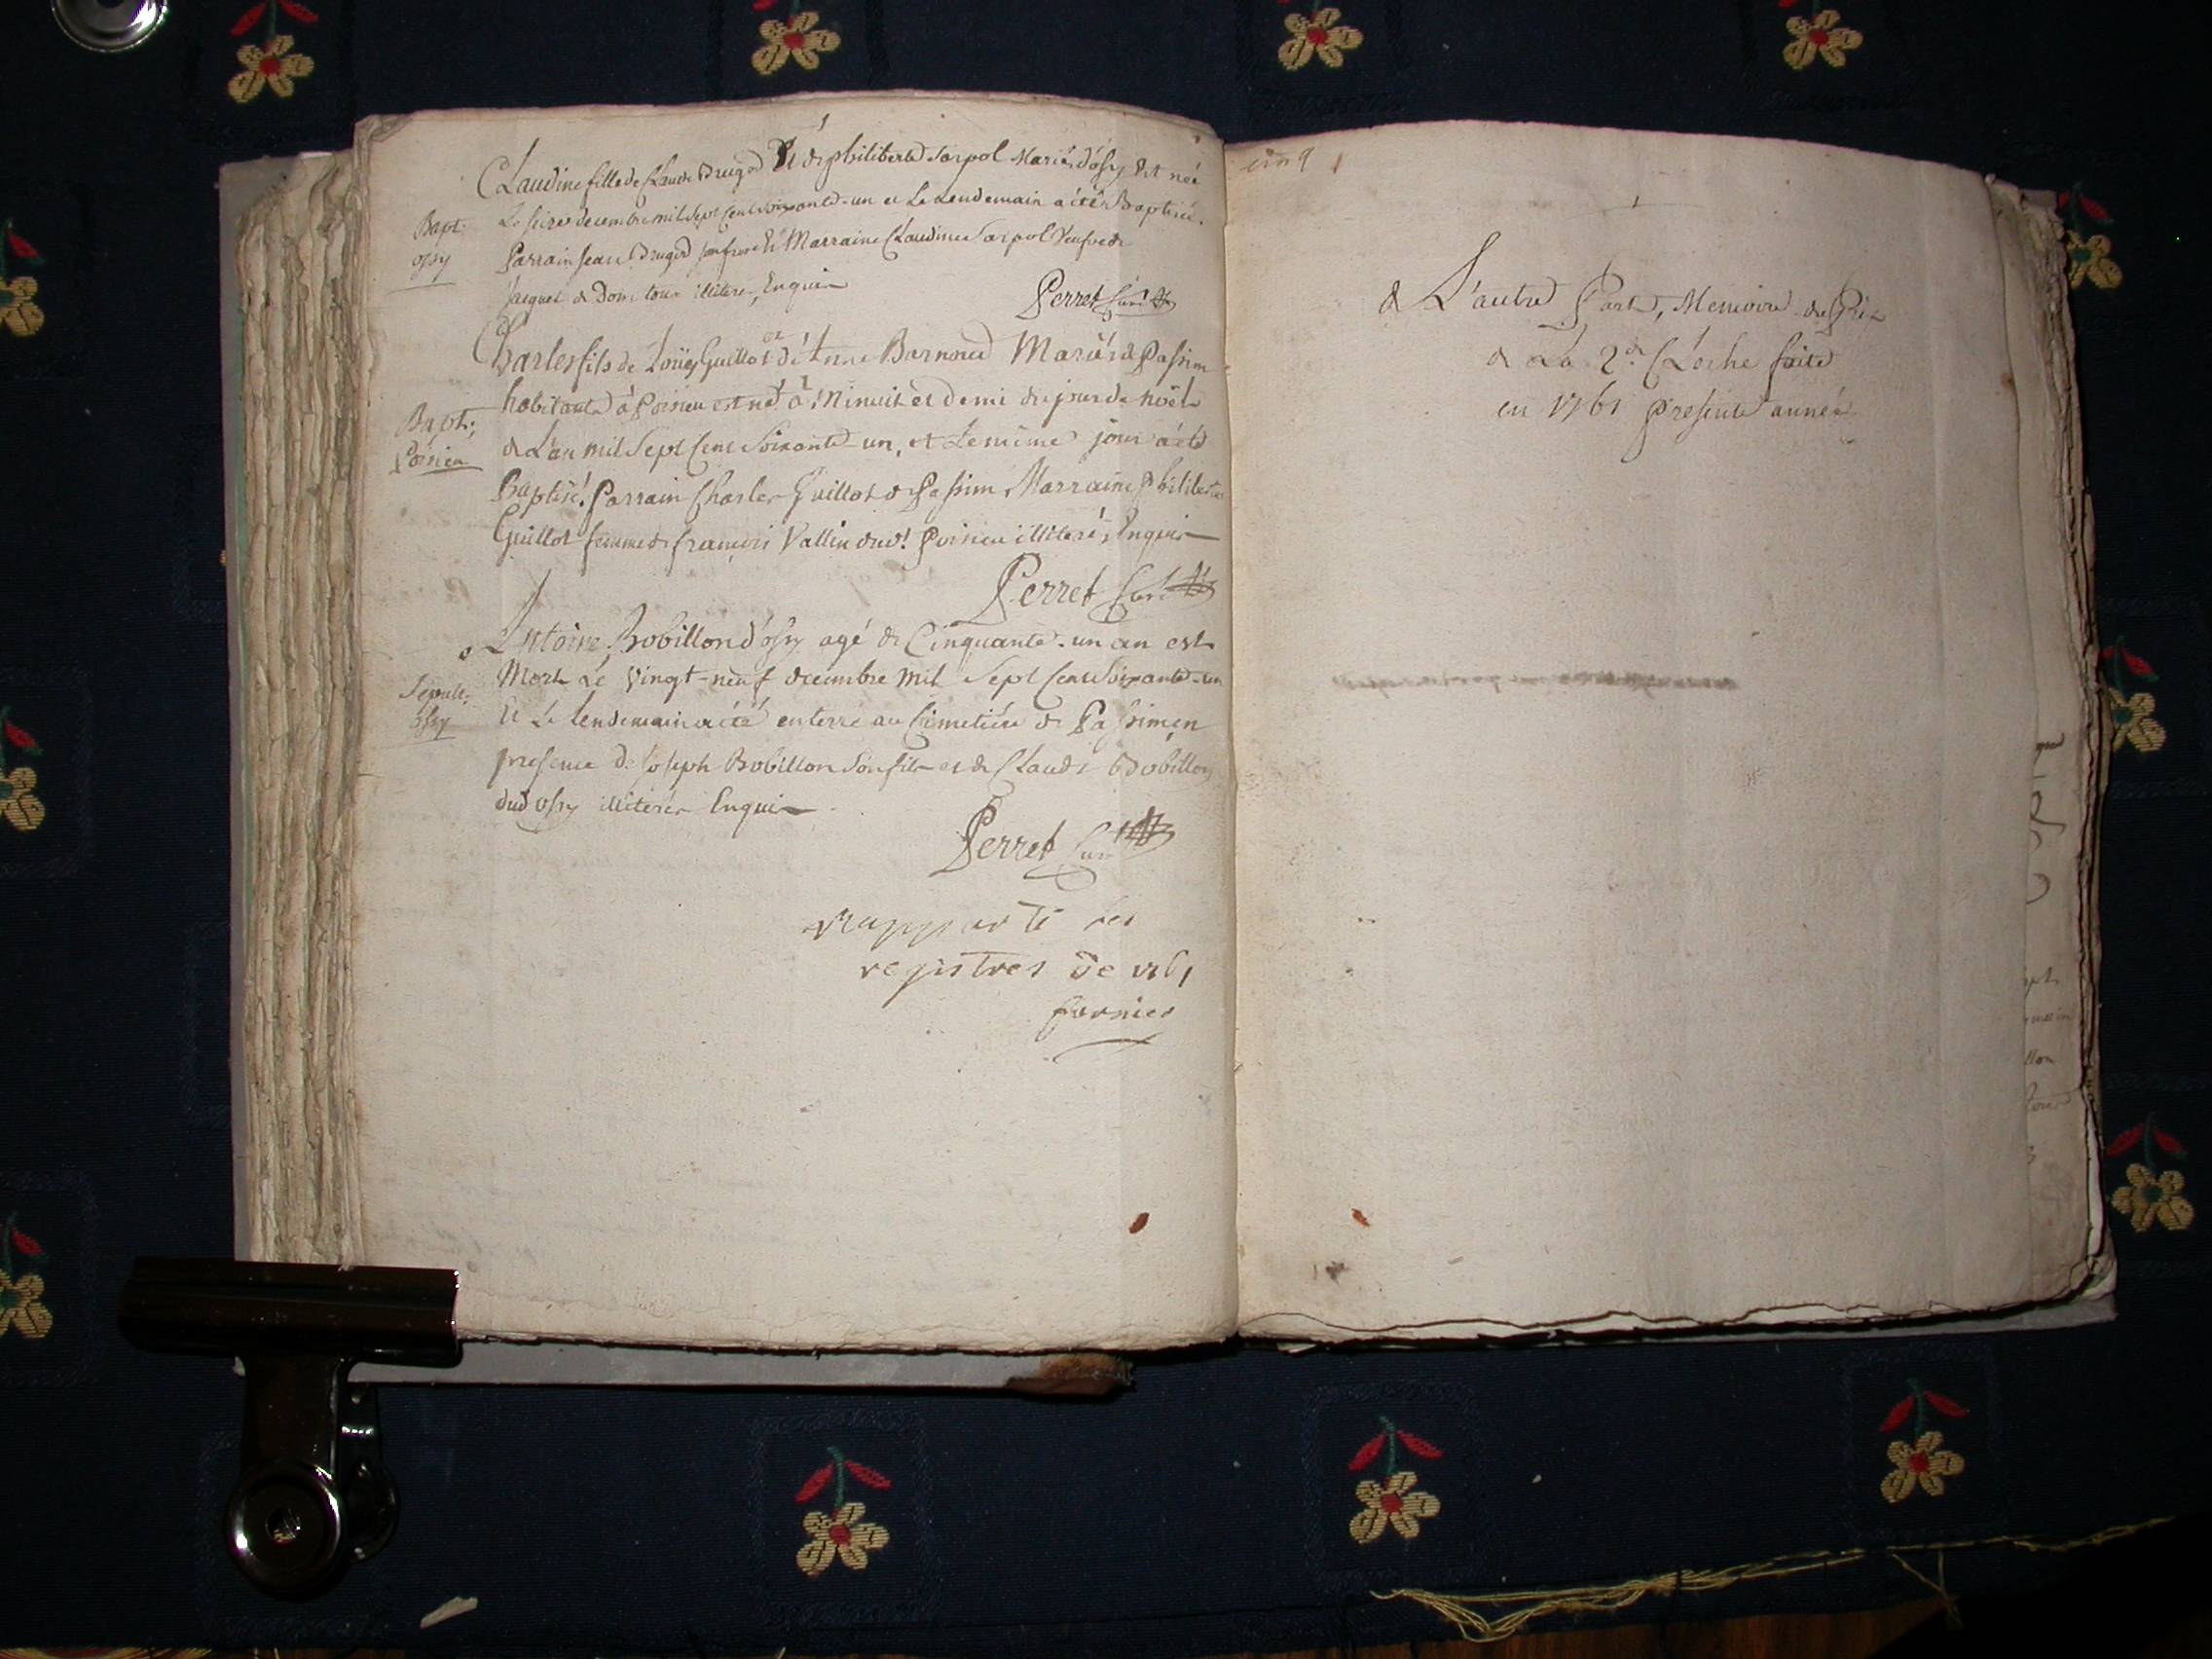 Claudine fille de Claude Drugod Et de philiberte Sarpol Mariés d'ossy Est née
Bapt:
ossy
Le seize decembre mil Sept Cent soixante-un et Le Lendemain a été Baptisée.
Parrain Jean Druged son frere Et Marraine Claudine Sarpol Veufve de
Jacques de Dom tous illiteres, Enquis
Perret Curé
Charles fils de Loüis Guillot et d'Anne Barnoud Mariés de Passim
habitants à Poisieu est né à Minuit et demi du jour de noël
Bapt:
Poisieu
de L'an mil Sept Cent Soixante-un, et Le même jour a été
Baptisé. Parrain Charles Guillot de Passim Marraine Philiberte
Guillot femme de françois Vallin dud! Poisieu illiterés, Enquis
Perret Curé
Antoine Bobillon d'ossy agé de Cinquante-un an est
Mort Le Vingt-neuf decembre mil Sept Cent Soixante-un
Sepult:
ossy
Et Le lendemain a été enterré au Cimetiere de Passim en
presence de Joseph Bobillon Son fils et de Claude Bobillon
dud ossy illiterés Enquis
Perret Curé
rapporté les
registres de 1761
fornier
cinq
de L'autre Part, Memoire du Prix
de La 2de Cloche faite
en 1761 presente année